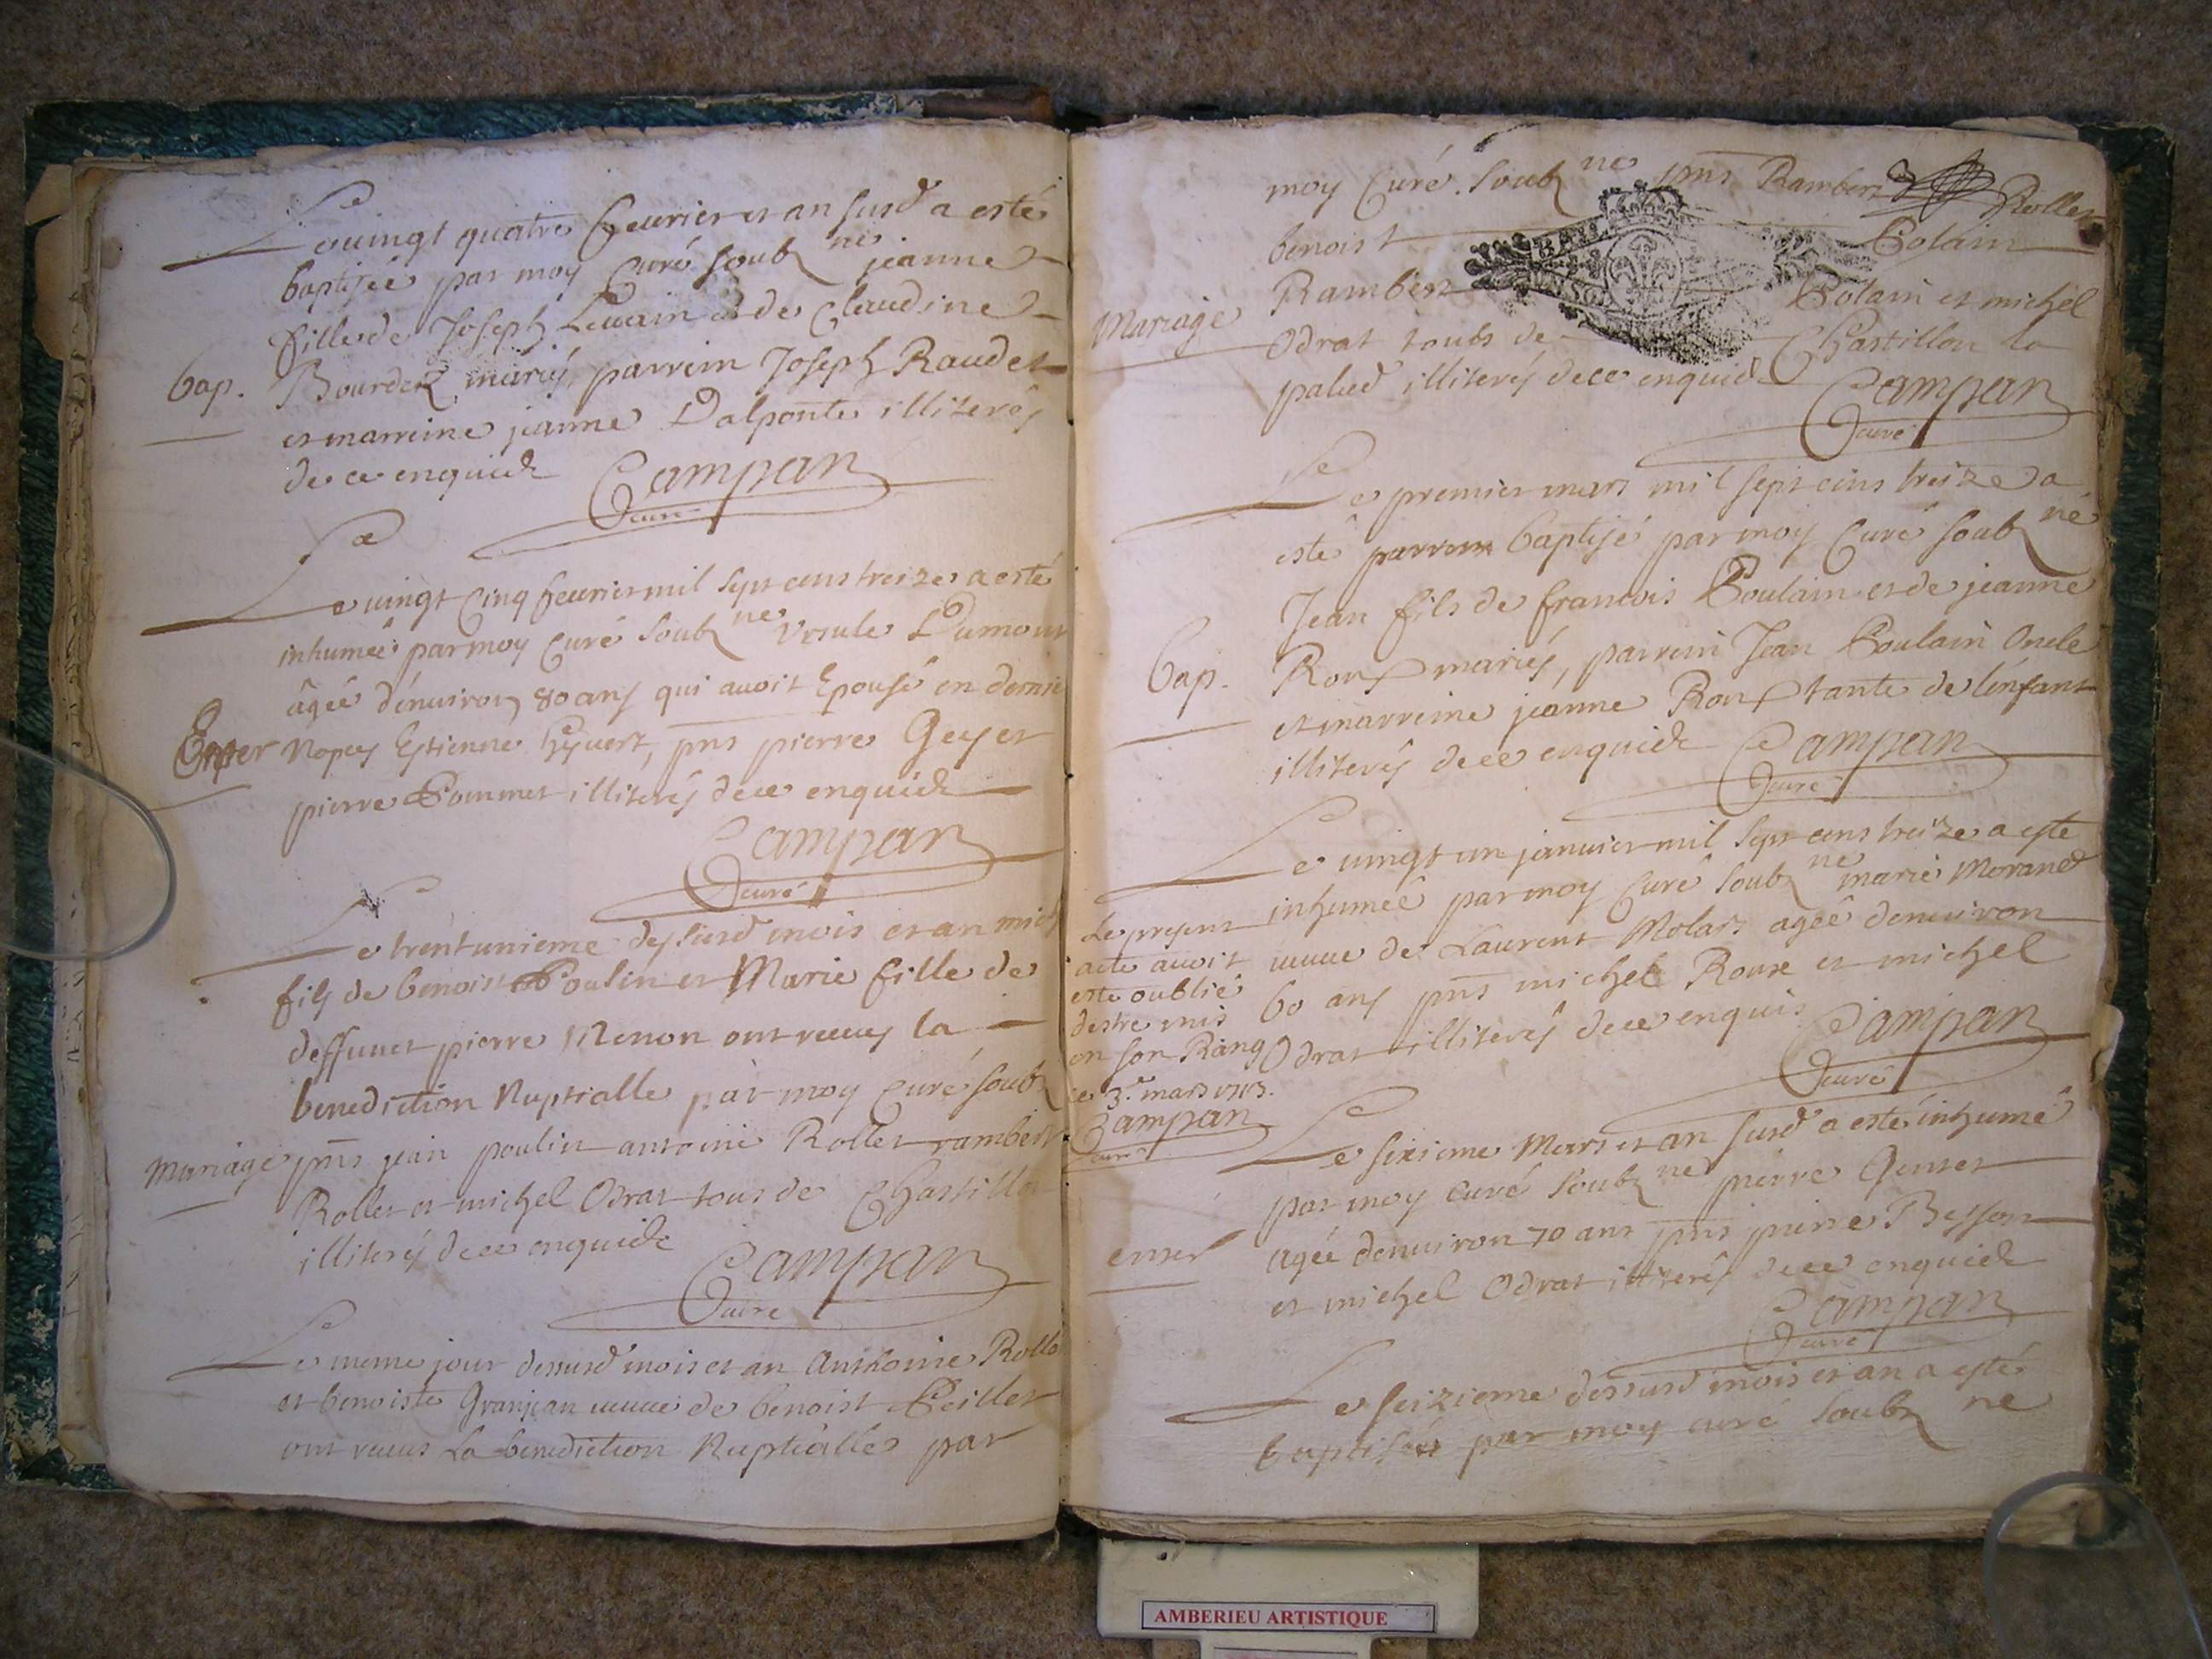 Le vingt quatre feuvrier et an susd a esté
baptisée par moy Curé soub ne jeanne
fille de Joseph Levrain et de Claudine
Bap. Bourdez mariés parrein Joseph Raudet
et marreine jeanne Dalponte illiterés
de ce enquide Campan
Curé
Le vingt Cinq feuvrier mil sept cens treize a esté
inhumée par moy Curé soub ne Ursule Dumont
âgée d'énuiron 80 ans qui avoit Epousé en
Enter Nopces Estienne pns pierre Geyet
pierre Pommet illiterés de ce enquide
Campan
Curé
Le trent unieme des susd mois et an mich
fils de benoist Poulin et Marie fille de
deffunct pierre Menon ont receus la
benediction Nuptialle par moy Curé soub
Mariage pns jean poulin antoine Rollet rambert
Rollet et michel Odrat tous de Chastillo
illiterés de ce enquide
Campan
Curé
Le meme jour dessusd mois et an Anthoine Rolle
et benoiste Granjean veuve de benoist Peillet
ont receus La benediction Nuptialle par
moy Curé soub ne pns Rambert Rollet
benoist Polain
Rambert Polain et michel
Mariage
Odrat touts de Chastillon la
palud illiterés de ce enquid Campan
Curé
Le premier mars mil sept cens treize a
esté parrein baptisé par moy Curé soub né
Jean fils de francois Poulain et de jeanne
Bap. Roux mariés, parrein Jean Poulain Oncle
et marreine jeanne Roux tante de l'enfant
illiterés de ce enquide Campan
Curé
Le vingt un janvier mil sept cens treize a esté
inhumée par moy Curé soub ne marie Morand
veuve de Laurent Molars agée denuiron
60 ans pns michel Roux et michel
Odrat illiterés de ce enquis Campan
Curé
Le present
acte avoit
esté oublié
destre mis
en son Rang
ce 3.e mars 1713.
Campan
Curé
Le sixieme Mars et an susd a esté inhumé
par moy curé soub ne pierre Genet
enter agée denuiron 70 ans pns pierre Besson
et michel Odrat illiterés de ce enquide
Campan
Curé
Le seizieme dessusd mois et an a esté
baptisée par moy curé soub ne
AMBERIEU ARTISTIQUE